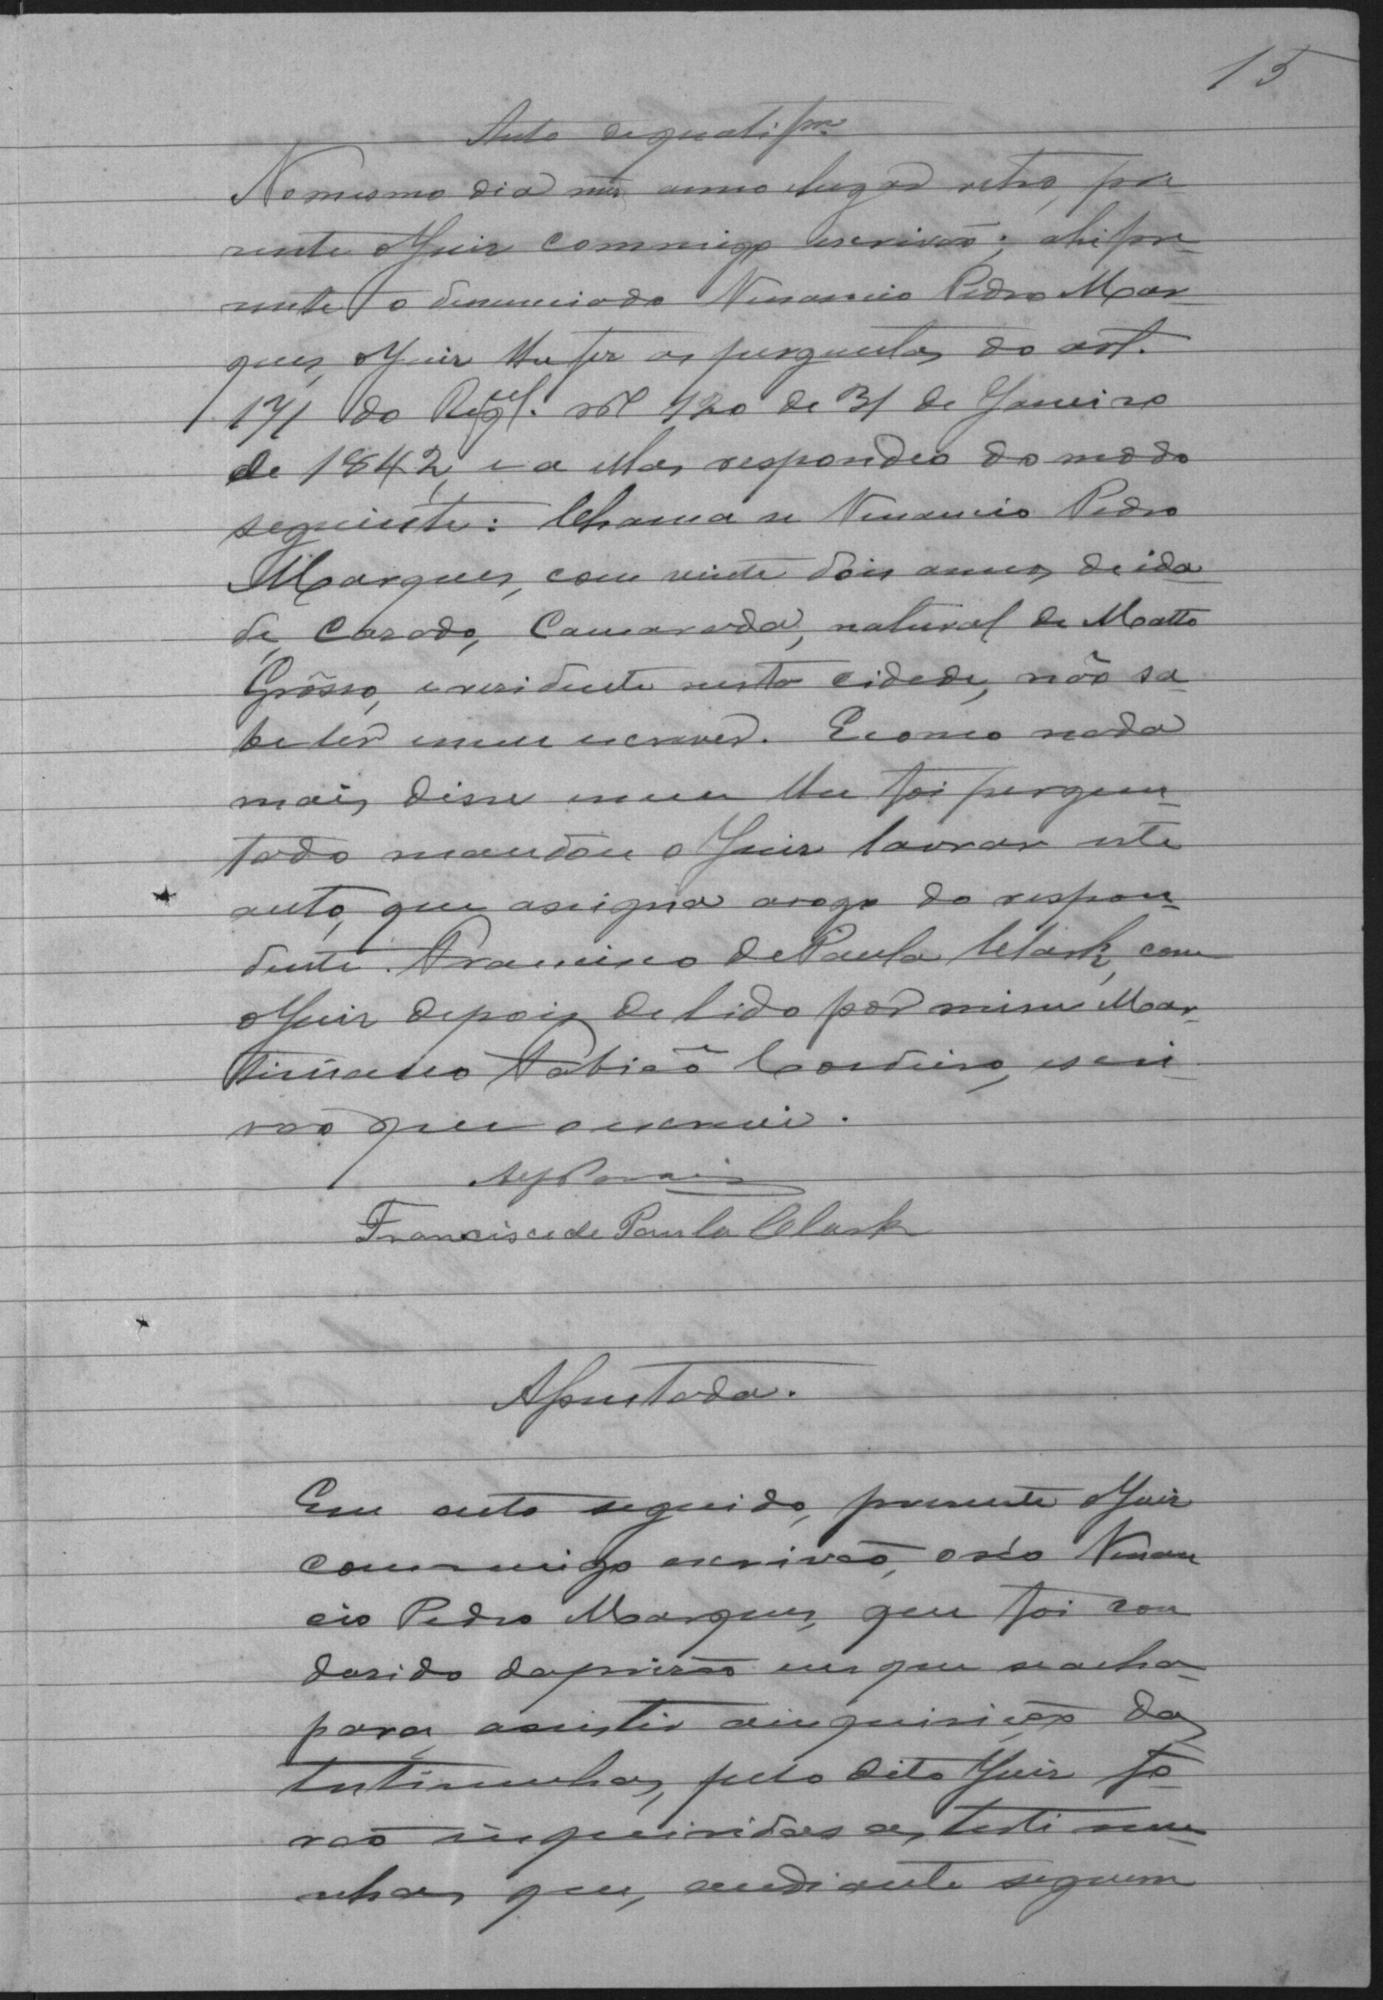 15
Auto de qualifm
No mesmo dia mes anno e lugar retro, pre
sente o Juiz commigo escrivão; ahi pre
sente o denunciado Venancio Pedro Mar
ques, o Juiz lhe fez as perguntas do art.
171 do Regul. nº 120 de 31 de Janeiro
de 1842, e a ellas respondeo do modo
seguinte: Chama se Venancio Pedro
Marques, com vinte dois annos de ida
de, casado, Camarada, natural de Matto
Grôsso, e residente nesta cidade, não sa
be lêr e nem escrever. E como nada
mais disse e nem lhe foi pergun
tado mandou o Juiz lavrar este
auto, que assigna a rogo do respon
dente Francisco de Paula Clark, com
o Juiz depois de lido por mim Mar
tiniano Fabião Cordeiro, escri
vão que o escrevi.
Francisco de Paula Clark
Assentada.
Em acto seguido, presente o Juiz
commigo escrivão, o réo Venan
cio Pedro Marques, que foi con
dusido da prisão em que se acha
para assistir a inquirição das
testimunhas, pelo dito Juiz fo
rão inqueiridas as testi mu
nhas que, andiante seguem